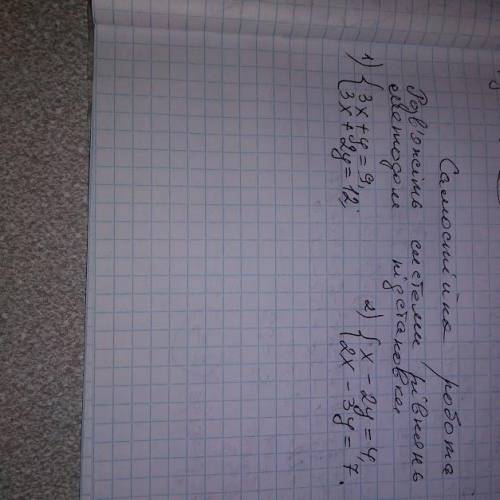 Самостійна робота
Розв'яжіть системи рівнянь
методом підстановки
1) {3x + y = 9, 2) {x - 2y = 4,
{3x + 2y = 12; {2x - 3y = 7.